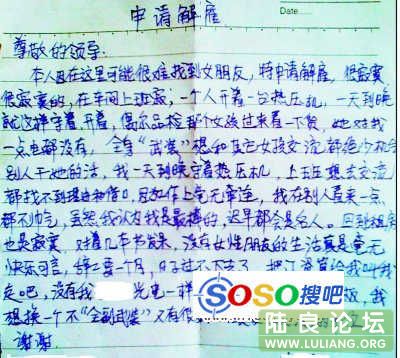 申请解雇
Date
尊敬的领导:
本人因在这里可能很难找到女朋友,特申请解雇,很寂寞
很寂寞的,在车间上班寂,一个人开着一台热压机,一天到晚
就这样守着,开着,偶尔品检那个女孩过来看一下货,她对我
一点电都没有,全身“武装”想和其它女孩交流都绝少机会
别人干她的活,我一天到晚守着热压机,上班想去交流
都找不到理由和借口,因工作上毫无牵连,我在别人看来一点
都不帅气,虽然我认为我是最棒的,迟早都会是名人。回到租房
也是寂寞,对着几本书发呆,没有女性朋友的生活真是毫无
快乐可言,辞工要一个月,日子过不下去了,把工资算给我叫我
走吧,没有我 光电一样
想换一个不“全副武装”又有很
谢谢
SOSO搜吧
陆良论坛
WWW.LULIANG.ORG